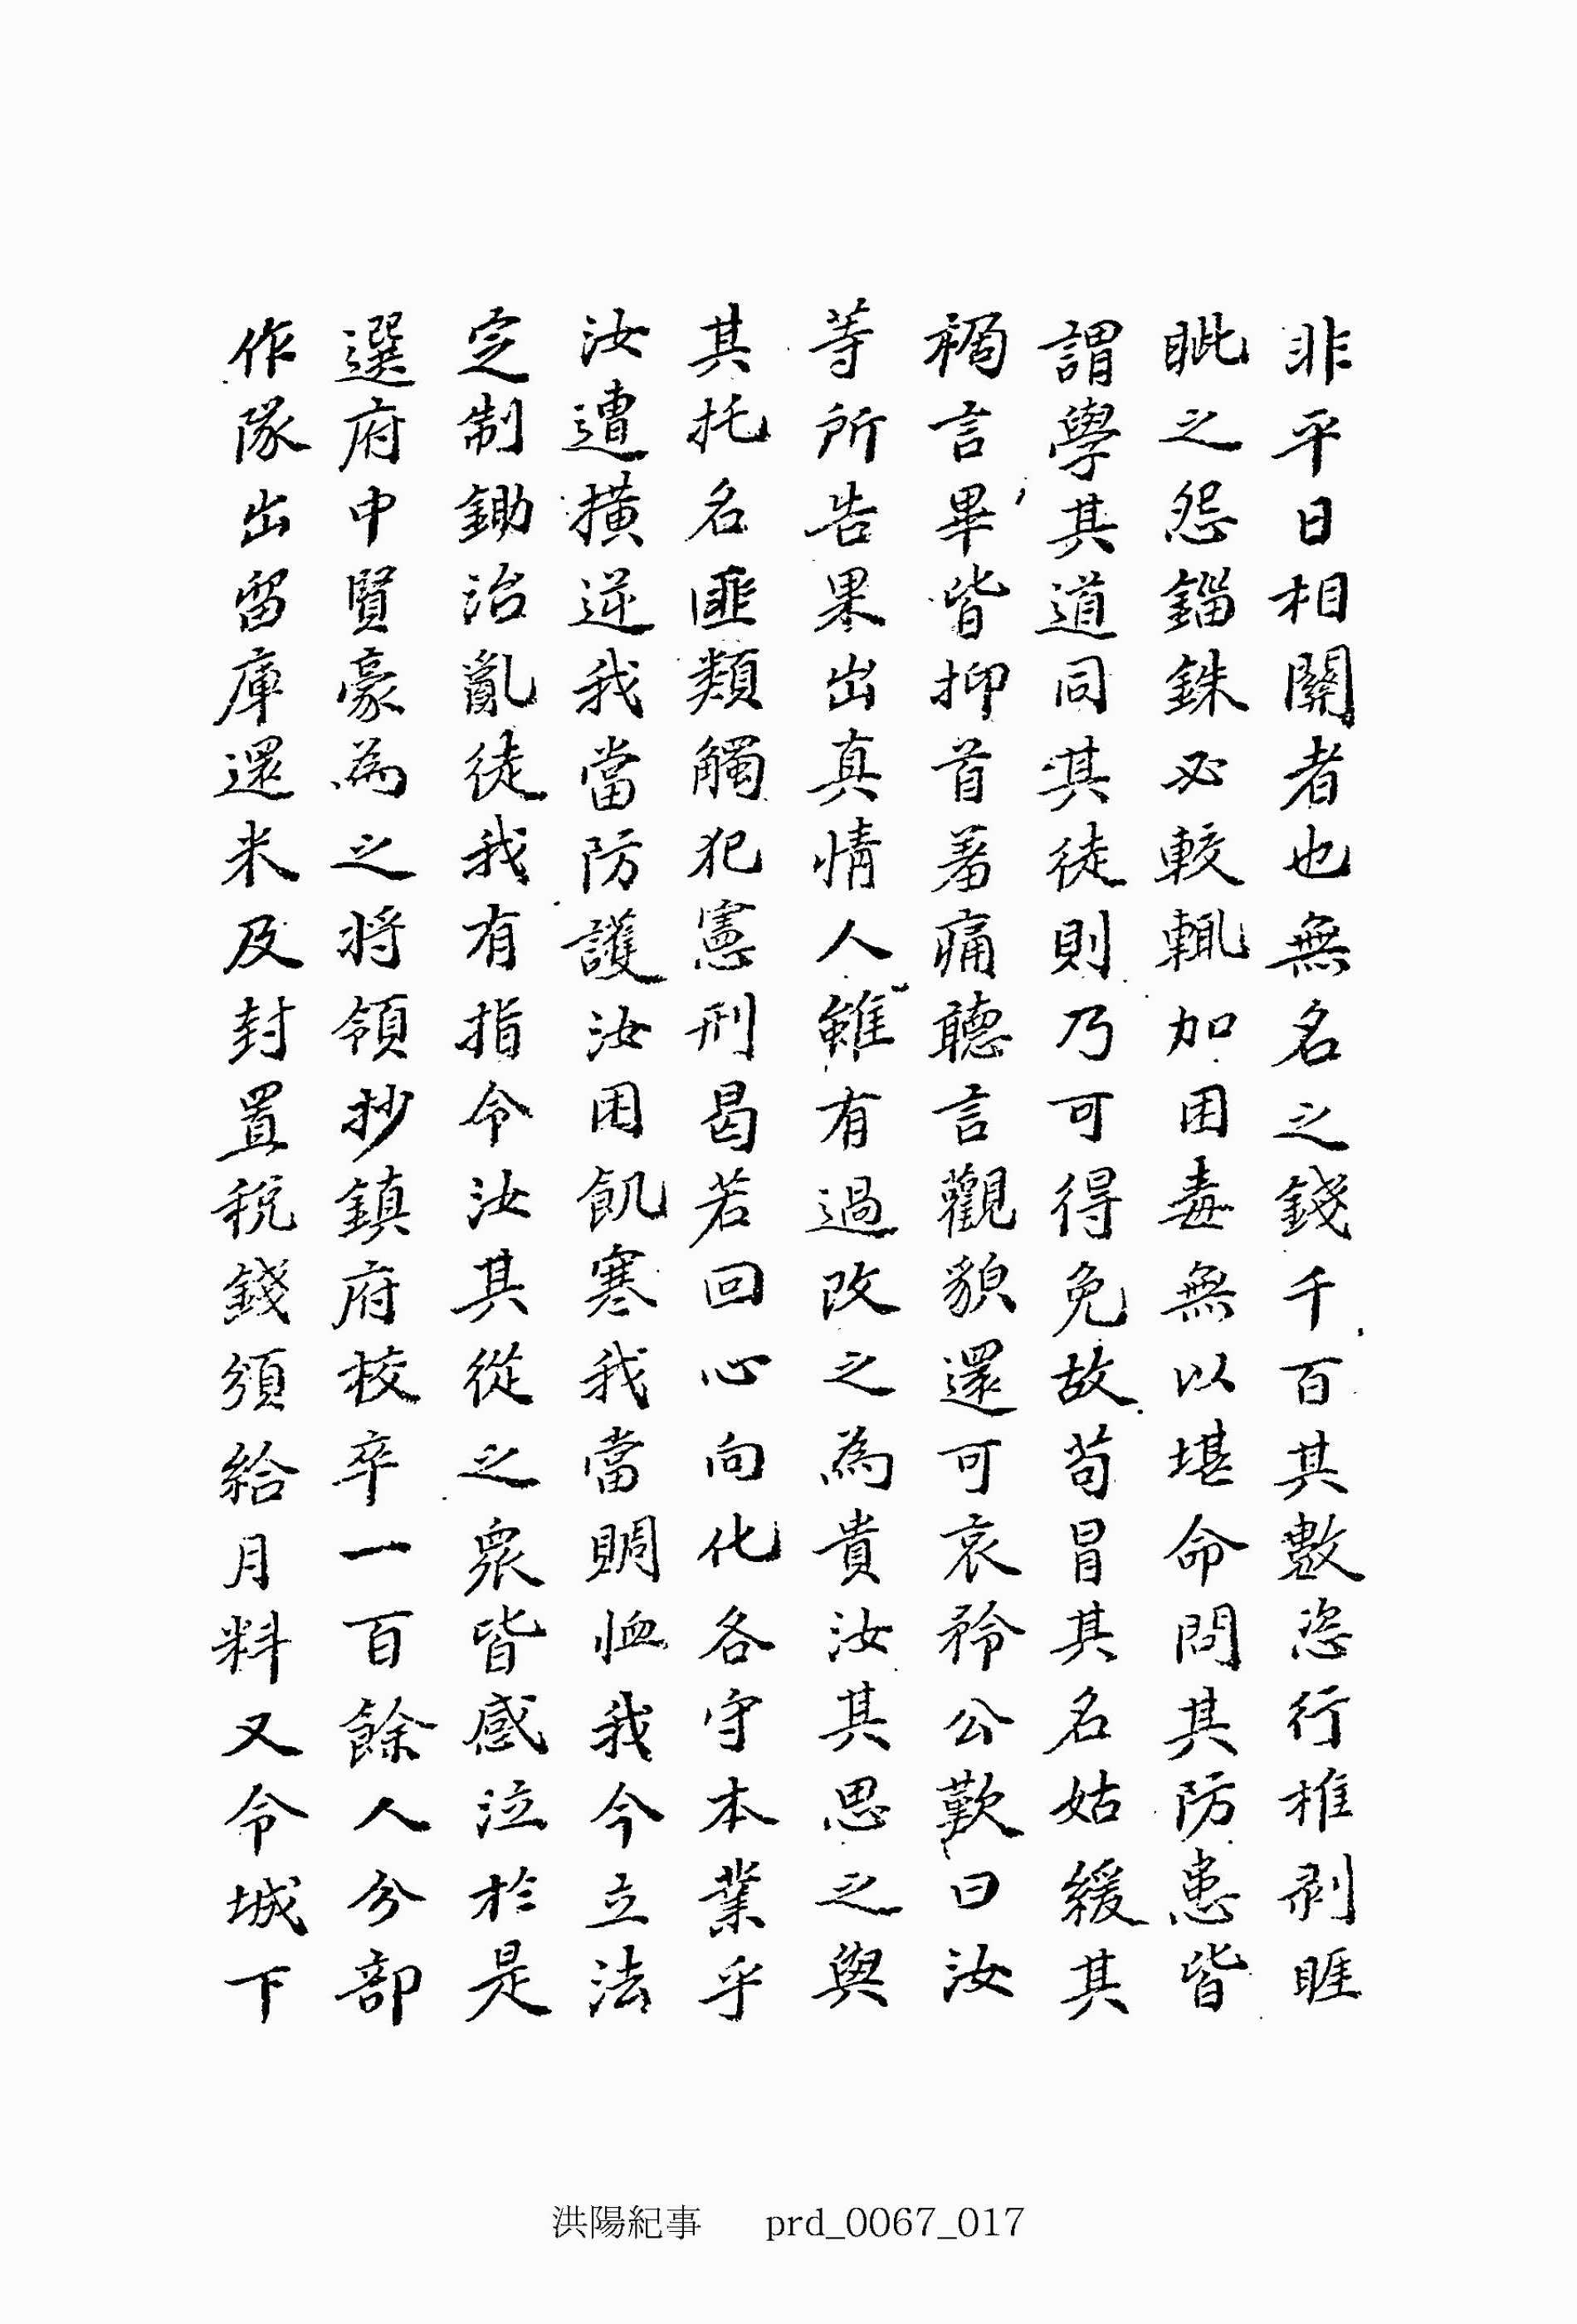 非平日相關者也無名之錢千百其數恣行椎剥睚
眦之怨錙銖必較輒加困毒無以堪命問其防患皆
謂學其道同其徒則乃可得免故苟冒其名姑緩其
禍言畢皆抑首羞痛聽言觀貌還可哀矜公歎曰汝
等所告果出真情人雖有過改之為貴汝其思之與
其托名匪類觸犯憲刑曷若回心向化各守本業乎
汝遭撗逆我當防護汝困飢寒我當賙恤我今立法
定制鋤治亂徒我有指令汝其從之衆皆感泣於是
選府中賢豪為之將領抄鎮府校卒一百餘人分部
作隊出留庫還米及封置稅錢頒給月料又令城下
洪陽紀事 prd_0067_017